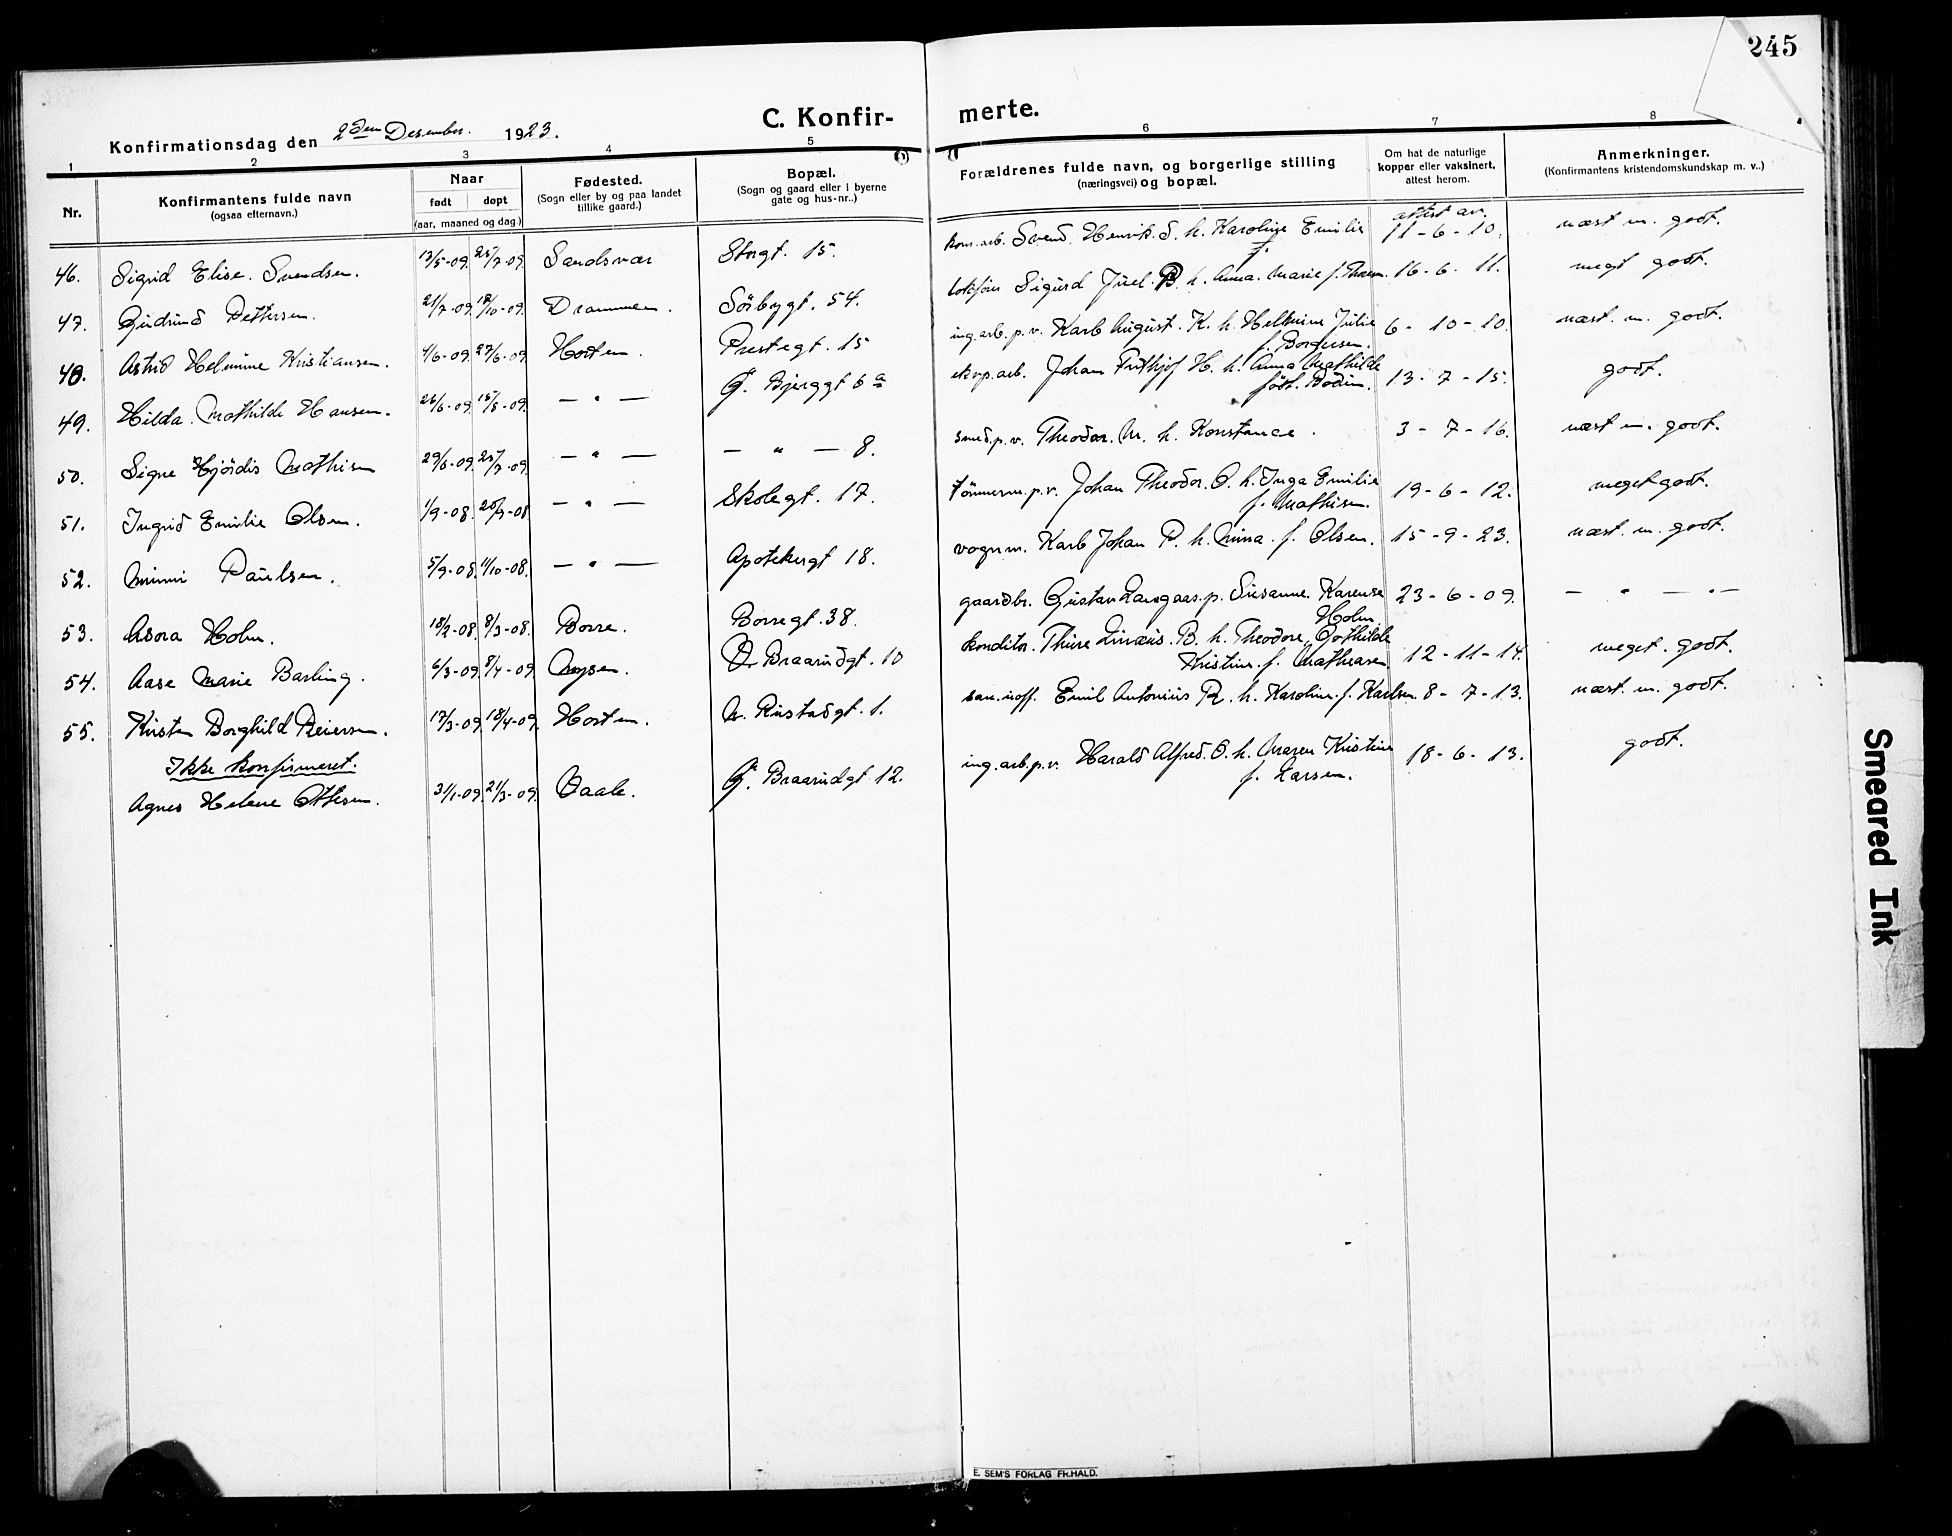 245
Konfirmationsdag den 2den Desember. 1923.
C. Konfirmerte.
1 2 3 4 5 6 7 8
Nr.
Konfirmantens fulde navn
(ogsaa efternavn.)
Naar
født døpt
(aar, maaned og dag.)
Fødested.
(Sogn eller by og paa landet
tillike gaard.)
Bopæl.
(Sogn og gaard eller i byerne
gate og hus-nr..)
Forældrenes fulde navn, og borgerlige stilling
(næringsvei) og bopæl.
Om hat de naturlige
kopper eller vaksinert,
attest herom.
Anmerkninger.
(Konfirmantens kristendomskundskap m. v..)
attest av.
46. Sigrid Elise. Svendsen. 13/5-09. 25/7-09 Sandsvær Storgt. 15. kom.arb. Svend. Henrik. S. h. Karoline Emilie 11-6-10. næst m. godt.
f.
47. Gudrund Pettersen. 21/7-09. /10-09. Drammen. Sörbygt. 54. lokför Sigurd Juel. P. h. Anna. Marie f. 16-6-11. megt godt.
48. Astrid Helmine Kristiansen. 4/6-09. 27/6-09. Horten. Prestegt. 15 ing.arb. p. v. Karl August. K. h. Helmine Julie 6-10-10. næst. m. godt.
f. Borgersen.
49. Hilda. Mathilde Hansen. /6-09. 15/8-09. — " — G. Bjerggt 6 a ekvp.arb. Johan Frithjof H. h. Anna Mathilde 13-7-15. godt.
född. Bodin.
50. Signe Hjördis Mathisen 29/6-09. 25/7-09. — " — — " — 8. smed.p.v. Theodor. M. h. Konstance. 3-7-16. næst m. godt.
51. Ingrid Emilie Olsen. 1/9-08. 20/9-08 — " — Skolegt. 17. tömmerm.p.v. Johan Theodor. O. h. Inga Emilie 19-6-12. meget godt.
f. Mathisen.
52. Mimmi Paulsen. 5/9-08. 11/10-08. — " — Apotekergt 18. vognm. Karl Johan P. h. Mina. f. Olsen. 15-9-23. næst. m. godt.
53. Asora Holm. 18/2-08. 8/3-08. Borre. Borregt. 38. gaardbr. Gustav Langaas. p. Susanne. Karense 23-6-09. — " — " —
Holm.
54. Aase Marie Barling. 6/3-09. 9/4-09. Mysen. Braarudgt. 10 konditor. Thure Linæus. B. h. Theodore, Bothilde 12-11-14. meget. godt.
Kristine f. Matheasen
55. Kirsten Borghild Reiersen. 17/3-09. 18/4-09. Horten. N. Rustadgt. 1. san.uoff. Emil Antonius R. h. Karoline. f. Karlsen 8-7-13. næst. m. godt.
Ikke konfirmeret.
Agnes Helene Ottesen. 31/1-09. 21/3-09. Vaale. G. Braarudgt. 12. ing.arb.p.v. Harald Alfred. O. h. Maren Kristine 18-6-13. godt.
f. Larsen.
E. SEM'S FORLAG FR.HALD.
Smeared Ink